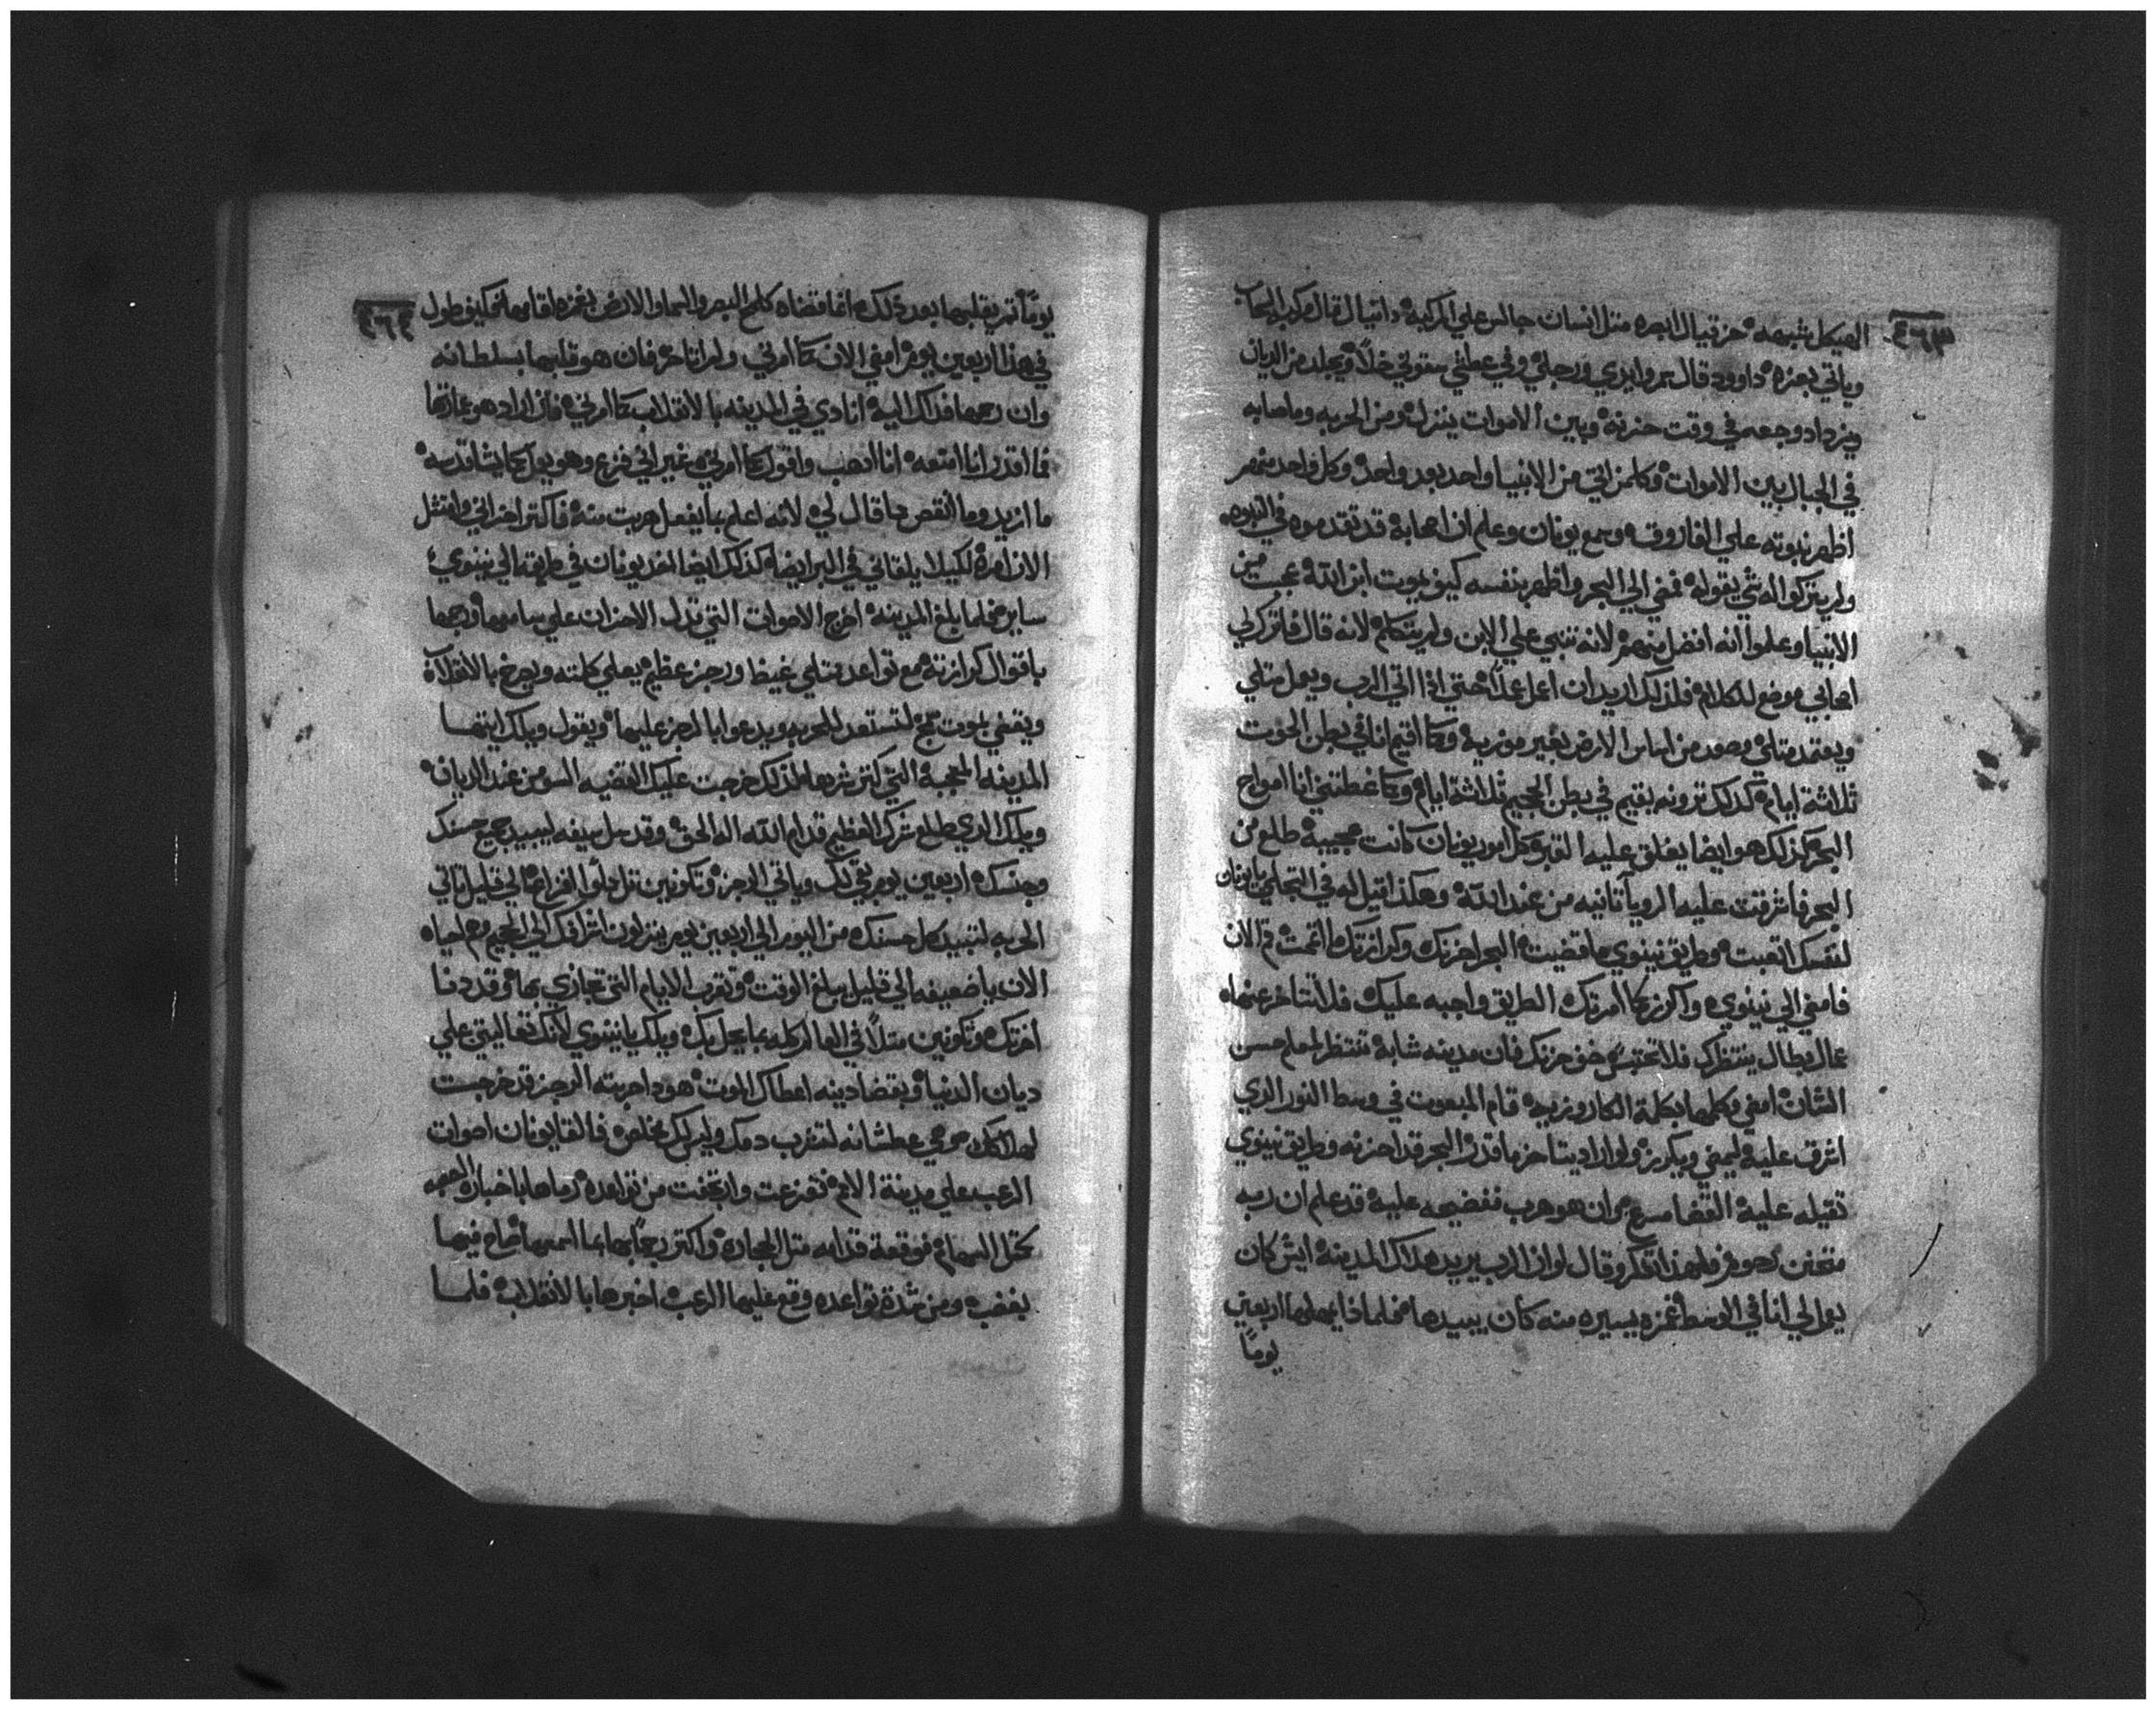 ٤٦٣
الهيكل شبهه ۀ حزقيال ابصره مثل انسان جالس علي المركبة ۀ دانيال قال مركب السحاب
وياتي بعزه ۀ داوود قال سمروا يدي ورجلي وفي عطشي سقوني خلاً ويجلد من الديان
ويزداد وجعه في وقت حزنه وبين الاموات ينزل ومن الحربه وماصابه
في الجبال بين الاموات وكلمن اتي من الانبيا واحد بعد واحد وكل واحد منهم
اظهر نبوته علي الفاروق وسمع يونان وعلم ان اصحابه قد تقدموه في النبوه
ولم يتركوا له شي يقوله فمضي الي البحر واظهر بنفسه كيف يموت ابن الله عجب من
الانبيا وعلموا انه افضل منهم لانه تنبي علي الابن ولم يتكلم لانه قال فاترك لي
اصحابي موضع للكلام فلذلك اريد ان اعمل عملاً حتي اذا اتي الرب ويعمل مثلي
ويعتمد مثلي وصعد من اساس الارض بغير موزيه وكما اقيم انا في بطن الحوت
ثلاثة ايام كذلك ترونه يقيم في بطن الجحيم ثلاثة ايام وكما غطتني انا امواج
البحر كذلك هو ايضا يغلق عليه القبر وكل امور يونان كانت عجيبة طلع من
البحر فاشرقت عليه الرويا تانيه من عند الله وهكذا قيل له في التجلي يا يونان
لنفسك اتعبت وطريق نينوي ما قضيت البحر احزنك وكرازتك ما تمت قم الان
فامضي الي نينوي واكرز كما امرتك الطريق واجبه عليك فلا تتاخر عنها
عمال بطال ينتظرك فلا تحتبس خف حزنك فان مدينه شابة تنتظر لمعلم حسن
الشاب امضي وكلمها بكلمة الكاروزيه قام المبعوت في وسط النور الذي
اشرق عليه ليمضي ويكرز ولو اراد يتاخر ما قدر البحر قد احزنه وطريق نينوي
تقيله عليه القضا مسرع وان هو هرب فضيحه عليه قد علم ان ربه
متحنن رحوم فلهذا تفكر وقال لو ان الرب يريد هلاك المدينة ايش كان
يعوالي انا في الاوسط غمزه يسيره منه كان يبيدها فلماذا يمهلها اربعين
يوماً
٤٦٤
يوماً تم يقلبها بعد ذلك
في هذا اربعين يوم امضي الان كما امرني ولم اتاخر فان هو قلبها بسلطانه
وان رحمها فذاك اليه انادي في المدينه بالانقلاب كما امرني فان اراد هو عاونها
فما اقدر انا امنعه انا اذهب واقول كما امرني غير اني فزع وهو يعمل كما يشا قدسه
ما ازيد وما انقص ما قال لي لانه اعلم بما يفعل هربت منه فاكتر احزاني وامتثل
الان امره لكيلا يلقاني في البر ايضا كذلك ايضا اخد يونان في طريقه الي نينوي
ساير فلما بلغ المدينه اخرج الاصوات التي تولد الاحزان علي سامعها ورجمها
باقوال كرازته مع تواعد ممتلي غيظ ورجز عظيم يعلي كلمته ويصرخ بالانقلاب
ويقضي بصوت لتستعد للحربه ويدعوا بالرجز عليها ويقول ويلك ايتها
المدينه العجيبة التي كتر شرها لذلك خرجت عليك القضيه السو من عند الديان
ويلك الذي طلع شرك العظيم قدام الله اله الحق وقد سل سيفه ليبيد جميع حسنك
وجنسك اربعين يوم بقي لك وياتي الرجز وتكونين تل
الحربه لتبيد كل حسنك من اليوم الي اربعين يوم ينزلون اشرافك الي الجحيم وهم احياه
الان يا ضعيفه الي قليل يبلغ الوقت وتقرب الايام التي تجازي بها وقد دنا
اخرتك وتكونين مثلاً في العالم كله بما يحل بك ويلك يا نينوي لانك تعاليتي علي
ديان الدنيا وبقضا دينه اعطاك الموت هوذا حربته الرجز قد خرجت
لهلاكك هوذي عطشانه لتشرب دمك وليس لك مخلص فالقا يونان اصوات
الرعب علي مدينة الامم ففزعت وارتجفت من تواعده رماها باخباره الصعبه
كمثل السهام فوقعة قدامه مثل الحجارة واكتر رجماً بها بما اسمعها صاح فيها
بغضب ومن شدة تواعده وقع عليها الرعب اخبرها بالانقلاب فلما